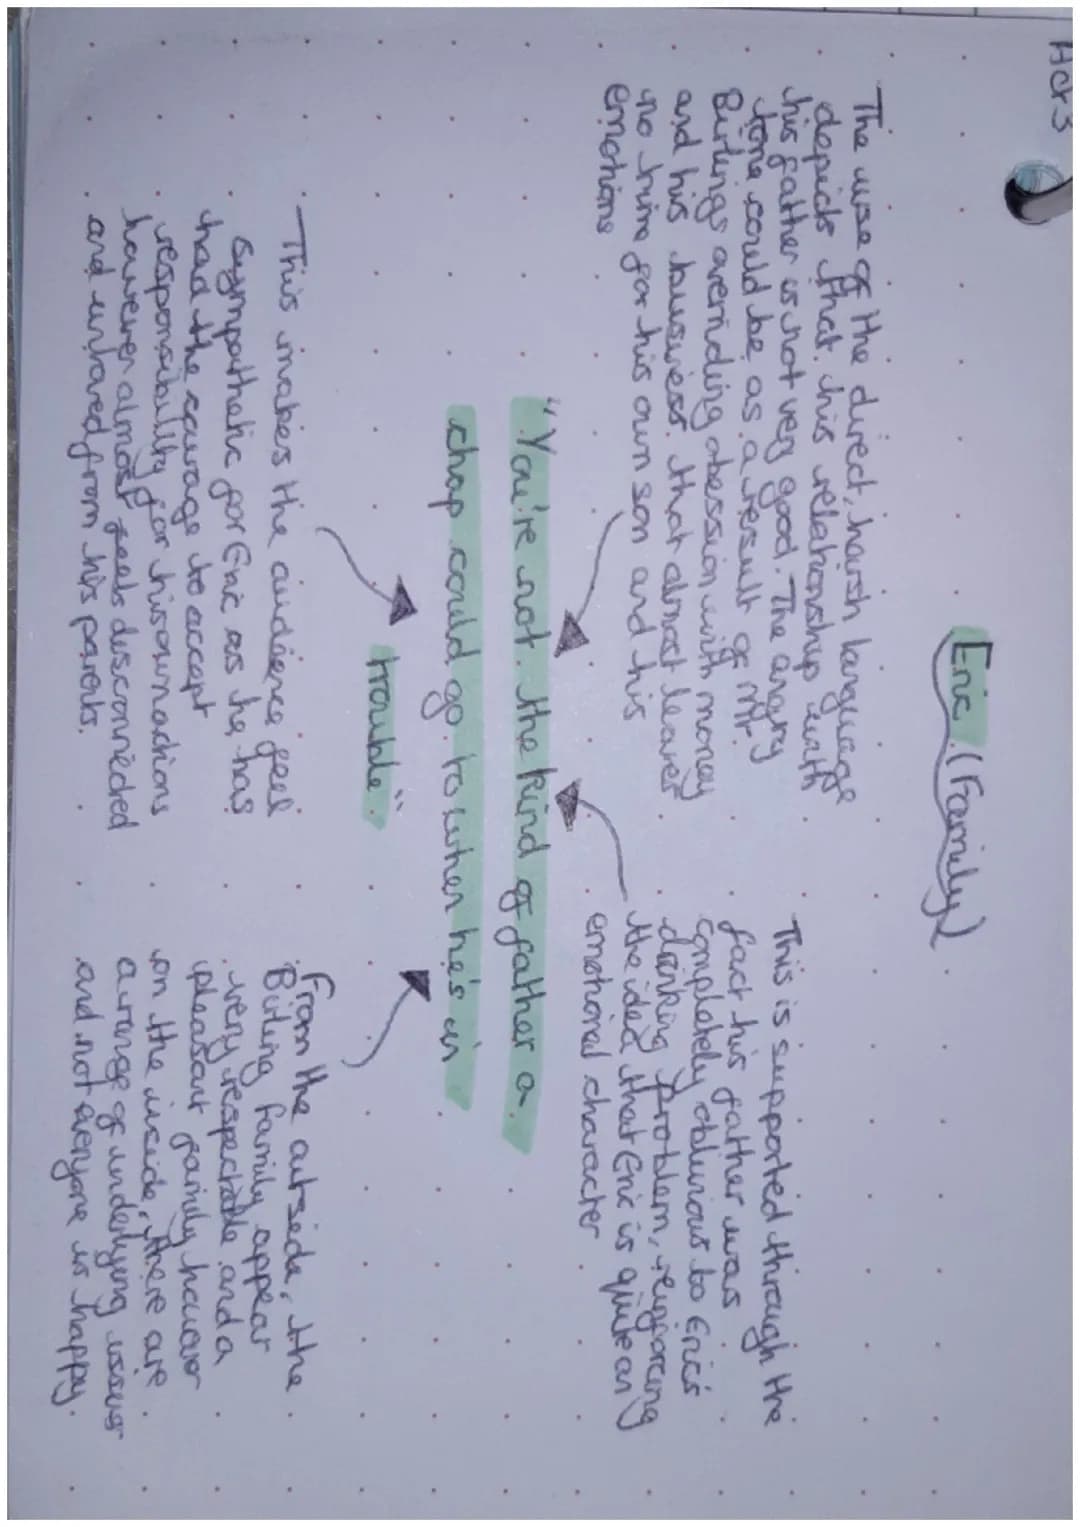 Act 3
Eric (Family)
The use of the direct, harsh language
depicts that his relationship with
his father is not very good. The angry
tone could be as a result of Mr
Birlings overriding obsession with money
and his business that almost leaves
no time for his own son and his
emotions
This is supported through the
fact his father was
completely oblivious to Eric's
drinking problem, reinforcing
the idea that Eric is quite an
emotional character
"You're not the kind of father a
chap could go to when he's in
trouble"
This makes the audience feel
sympathetic for Eric as he has
had the courage to accept
responsibility for his own actions
however almost feels disconnected
and unloved from his parents.
From the outside, the
Birling family appear
very respectable and a
pleasant family however
on the inside, there are
a range of underlying issues
and not everyone is happy.